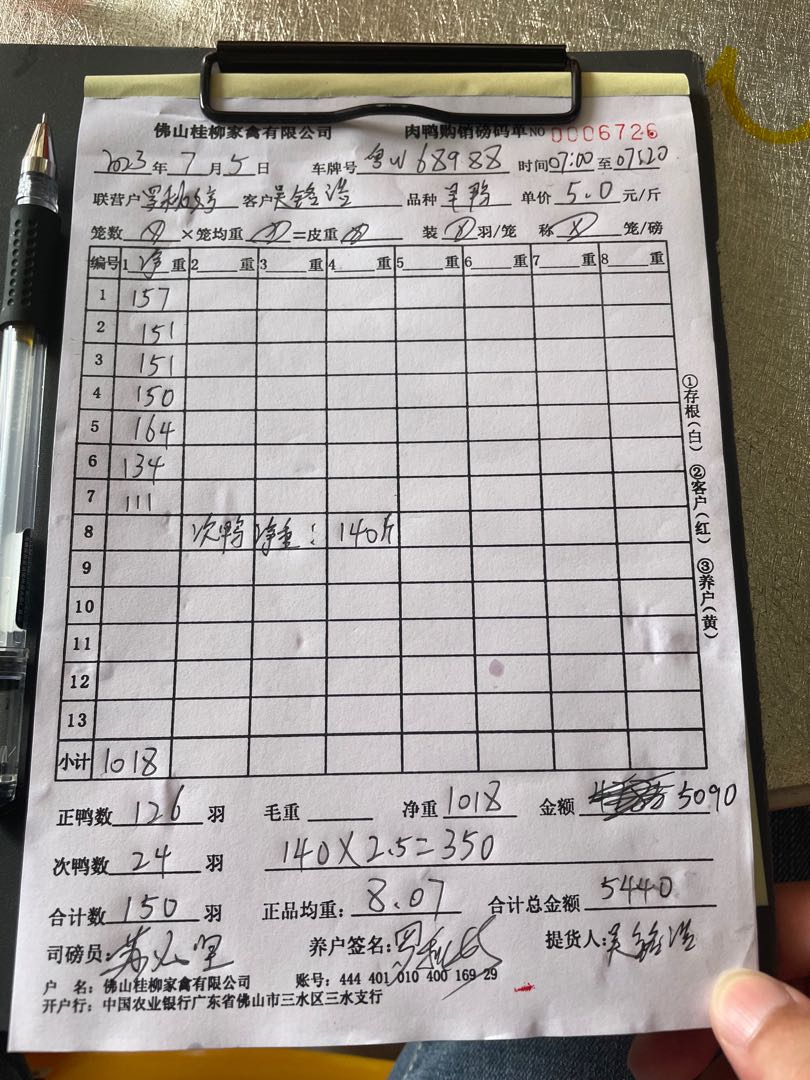 佛山桂柳家禽有限公司 肉鸭购销磅码单 NO 0006726
2023年7月5日 车牌号 粤W68988 时间07:00至07:20
联营户 客户吴锦浩 品种 单价5.0元/斤
笼数 ×笼均重 =皮重 装 羽/笼 称 笼/磅
编号 1净重 2 重 3 重 4 重 5 重 6 重 7 重 8 重
1 157
2 151
3 151
4 150
5 164
6 134
7 111
8 次鸭净重:140斤
9
10
11
12
13
小计 1018
①存根(白) ②客户(红) ③养户(黄)
正鸭数126羽 毛重 净重1018 金额 5090
次鸭数24羽 140×2.5=350
合计数150羽 正品均重:8.07 合计总金额5440
司磅员: 养户签名: 提货人:吴锦浩
户 名:佛山桂柳家禽有限公司 账号:444 401 010 400 169 29
开户行:中国农业银行广东省佛山市三水区三水支行